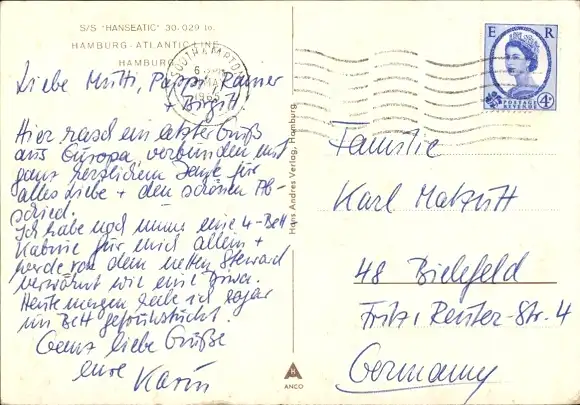 S/S "HANSEATIC" 30.029 to.
HAMBURG-ATLANTIC LINE
HAMBURG
Liebe Mutti, Pappi, Rainer
+ Birgitt
Hier rasch ein letzter Gruß
aus Europa, verbunden mit
ganz herzlichem Dank für
alles Liebe + den schönen Ab-
schied.
Ich habe noch immer eine 4-Bett
Kabine für mich allein +
werde von dem netten Steward
verwöhnt wie eine Diva.
Heute morgen habe ich sogar
im Bett gefrühstückt.
Ganz liebe Grüße
eure Karin
SOUTHAMPTON
Hans Andres Verlag, Hamburg
ANCO
E R
POSTAGE
REVENUE
4D
Familie
Karl
48 Bielefeld
Fritz-Reuter-Str. 4
Germany